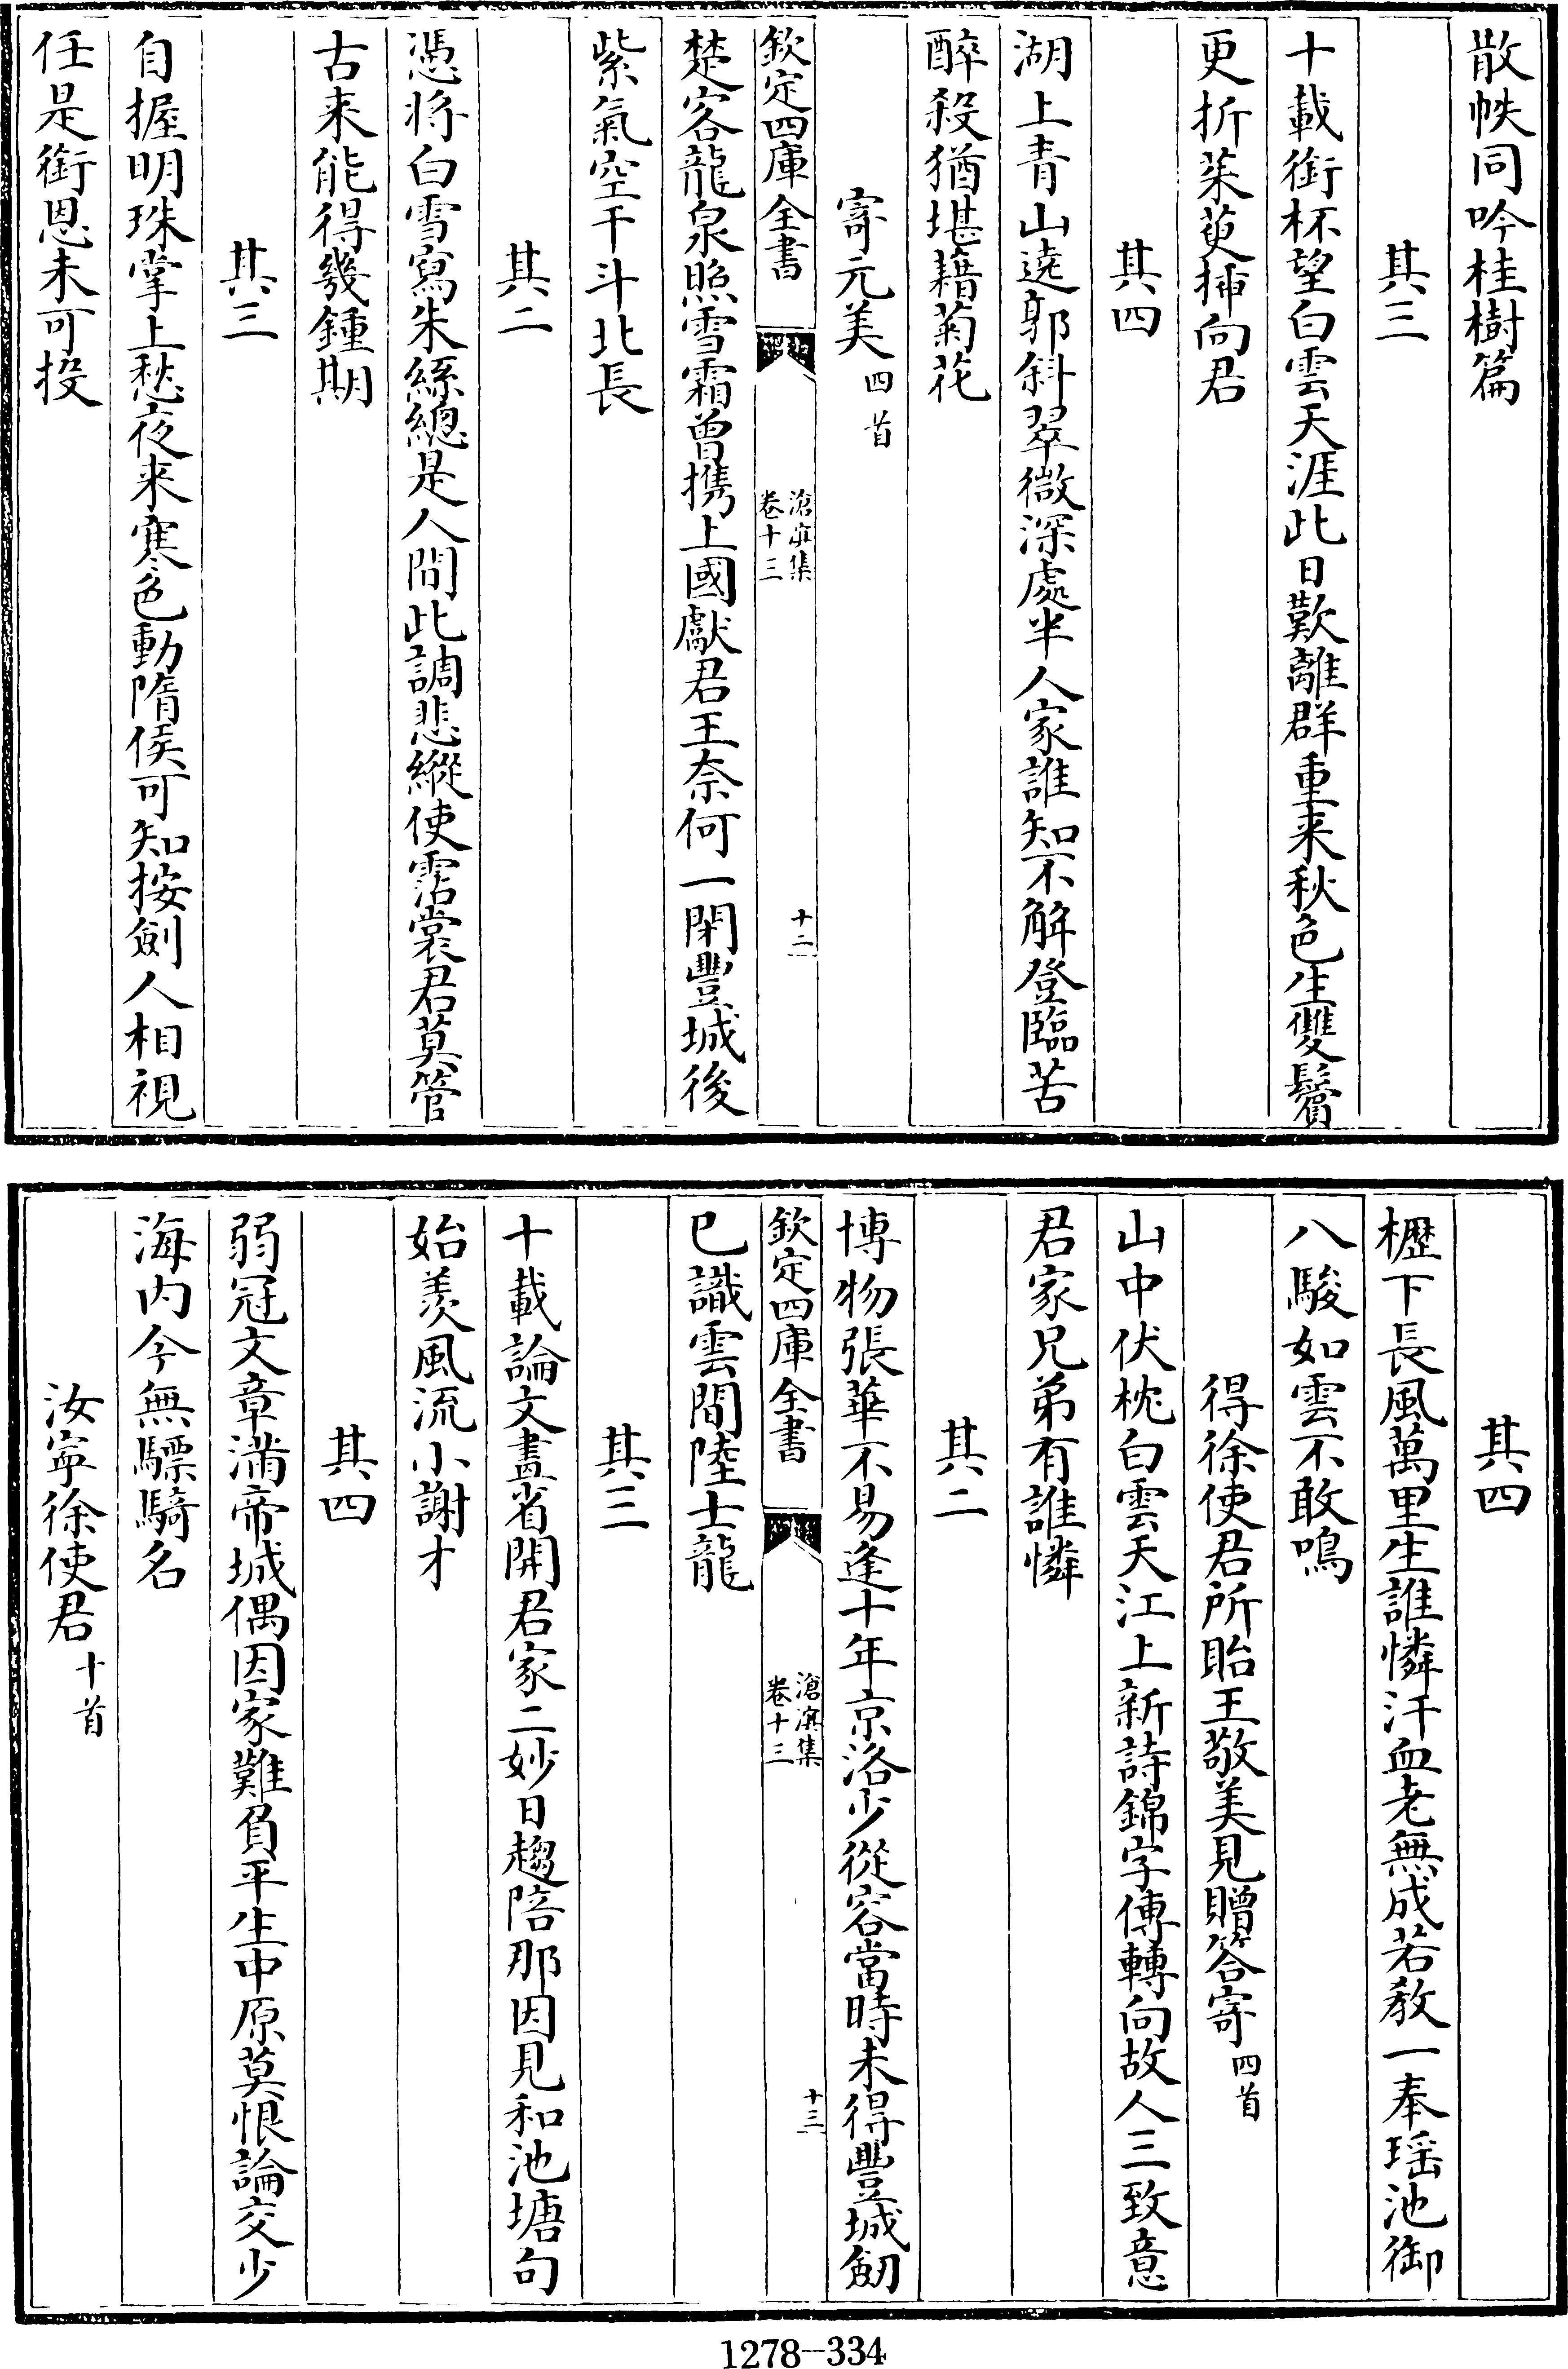 散帙同吟桂樹篇
其三
十載銜杯望白雲天涯此日歎離群重来秋色生雙鬢
更折茱萸揷向君
其四
湖上青山遶郭斜翠微深處半人家誰知不解登臨苦
醉殺猶堪藉菊花
寄元美四首
欽定四庫全書
滄溟集
卷十三
十二
楚客龍泉照雪霜曾携上國獻君王奈何一閉豐城後
紫氣空干斗北長
其二
憑将白雪寫朱絲總是人間此調悲縱使霑裳君莫管
古来能得幾鍾期
其三
自握明珠掌上愁夜来寒色動隋侯可知按劍人相視
任是銜恩未可投
其四
櫪下長風萬里生誰憐汗血老無成若教一奉瑶池御
八駿如雲不敢鳴
得徐使君所貽王敬美見贈答寄四首
山中伏枕白雲天江上新詩錦字傳轉向故人三致意
君家兄弟有誰憐
其二
博物張華不易逢十年京洛少從容當時未得豐城劒
欽定四庫全書
滄溟集
卷十三
十三
已識雲間陸士龍
其三
十載論文畫省開君家二妙日趨陪那因見和池塘句
始羨風流小謝才
其四
弱冠文章滿帝城偶因家難負平生中原莫恨論交少
海内今無驃騎名
汝寧徐使君十首
1278-334